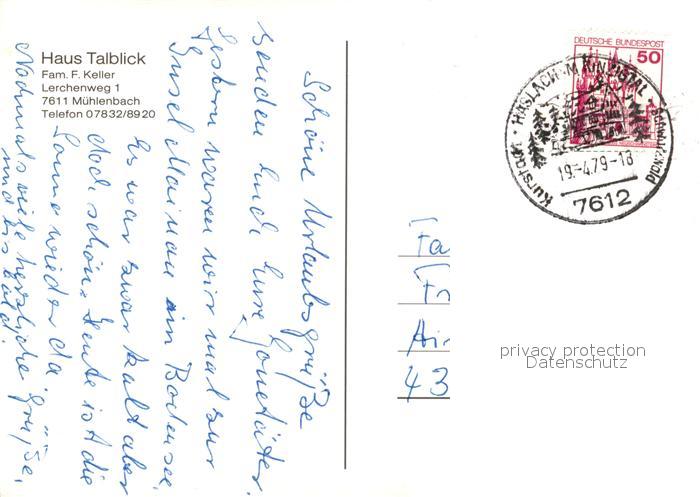 Haus Talblick
Fam. F. Keller
Lerchenweg 1
7611 Mühlenbach
Telefon 07832/8920
Schöne Urlaubsgrüße
senden Euch Eure
Gestern waren wir mal zur
Insel Mainau am Bodensee.
Es war zwar kalt aber
doch schön. Heute ist die
Sonne wieder da.
Nochmals viele herzliche Grüße,
und bis bald.
DEUTSCHE BUNDESPOST
50
Kurstadt · HASLACH · KINZIGTAL · Schwarzwald
19.-4.79-18
7612
Fa
Fr
Air
43
privacy protection
Datenschutz